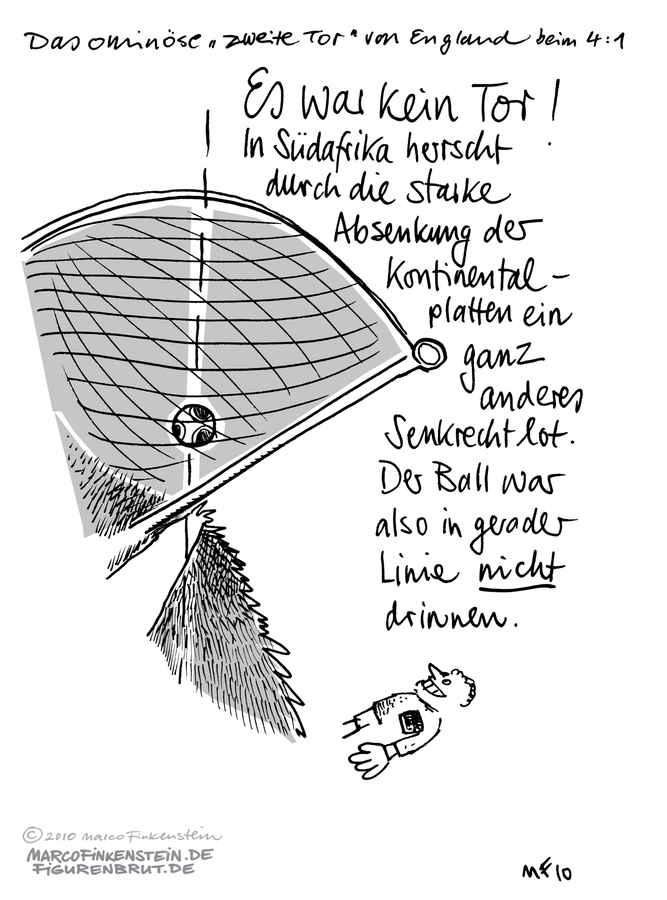 Das ominöse „zweite Tor" von England beim 4:1
Es war kein Tor!
In Südafrika herrscht
durch die starke
Absenkung der
Kontinental-
platten ein
ganz
anderes
Senkrechtlot.
Der Ball war
also in gerader
Linie nicht
drinnen.
© 2010 Marco Finkenstein
MARCOFINKENSTEIN.DE
FIGURENBRUT.DE
MF 10